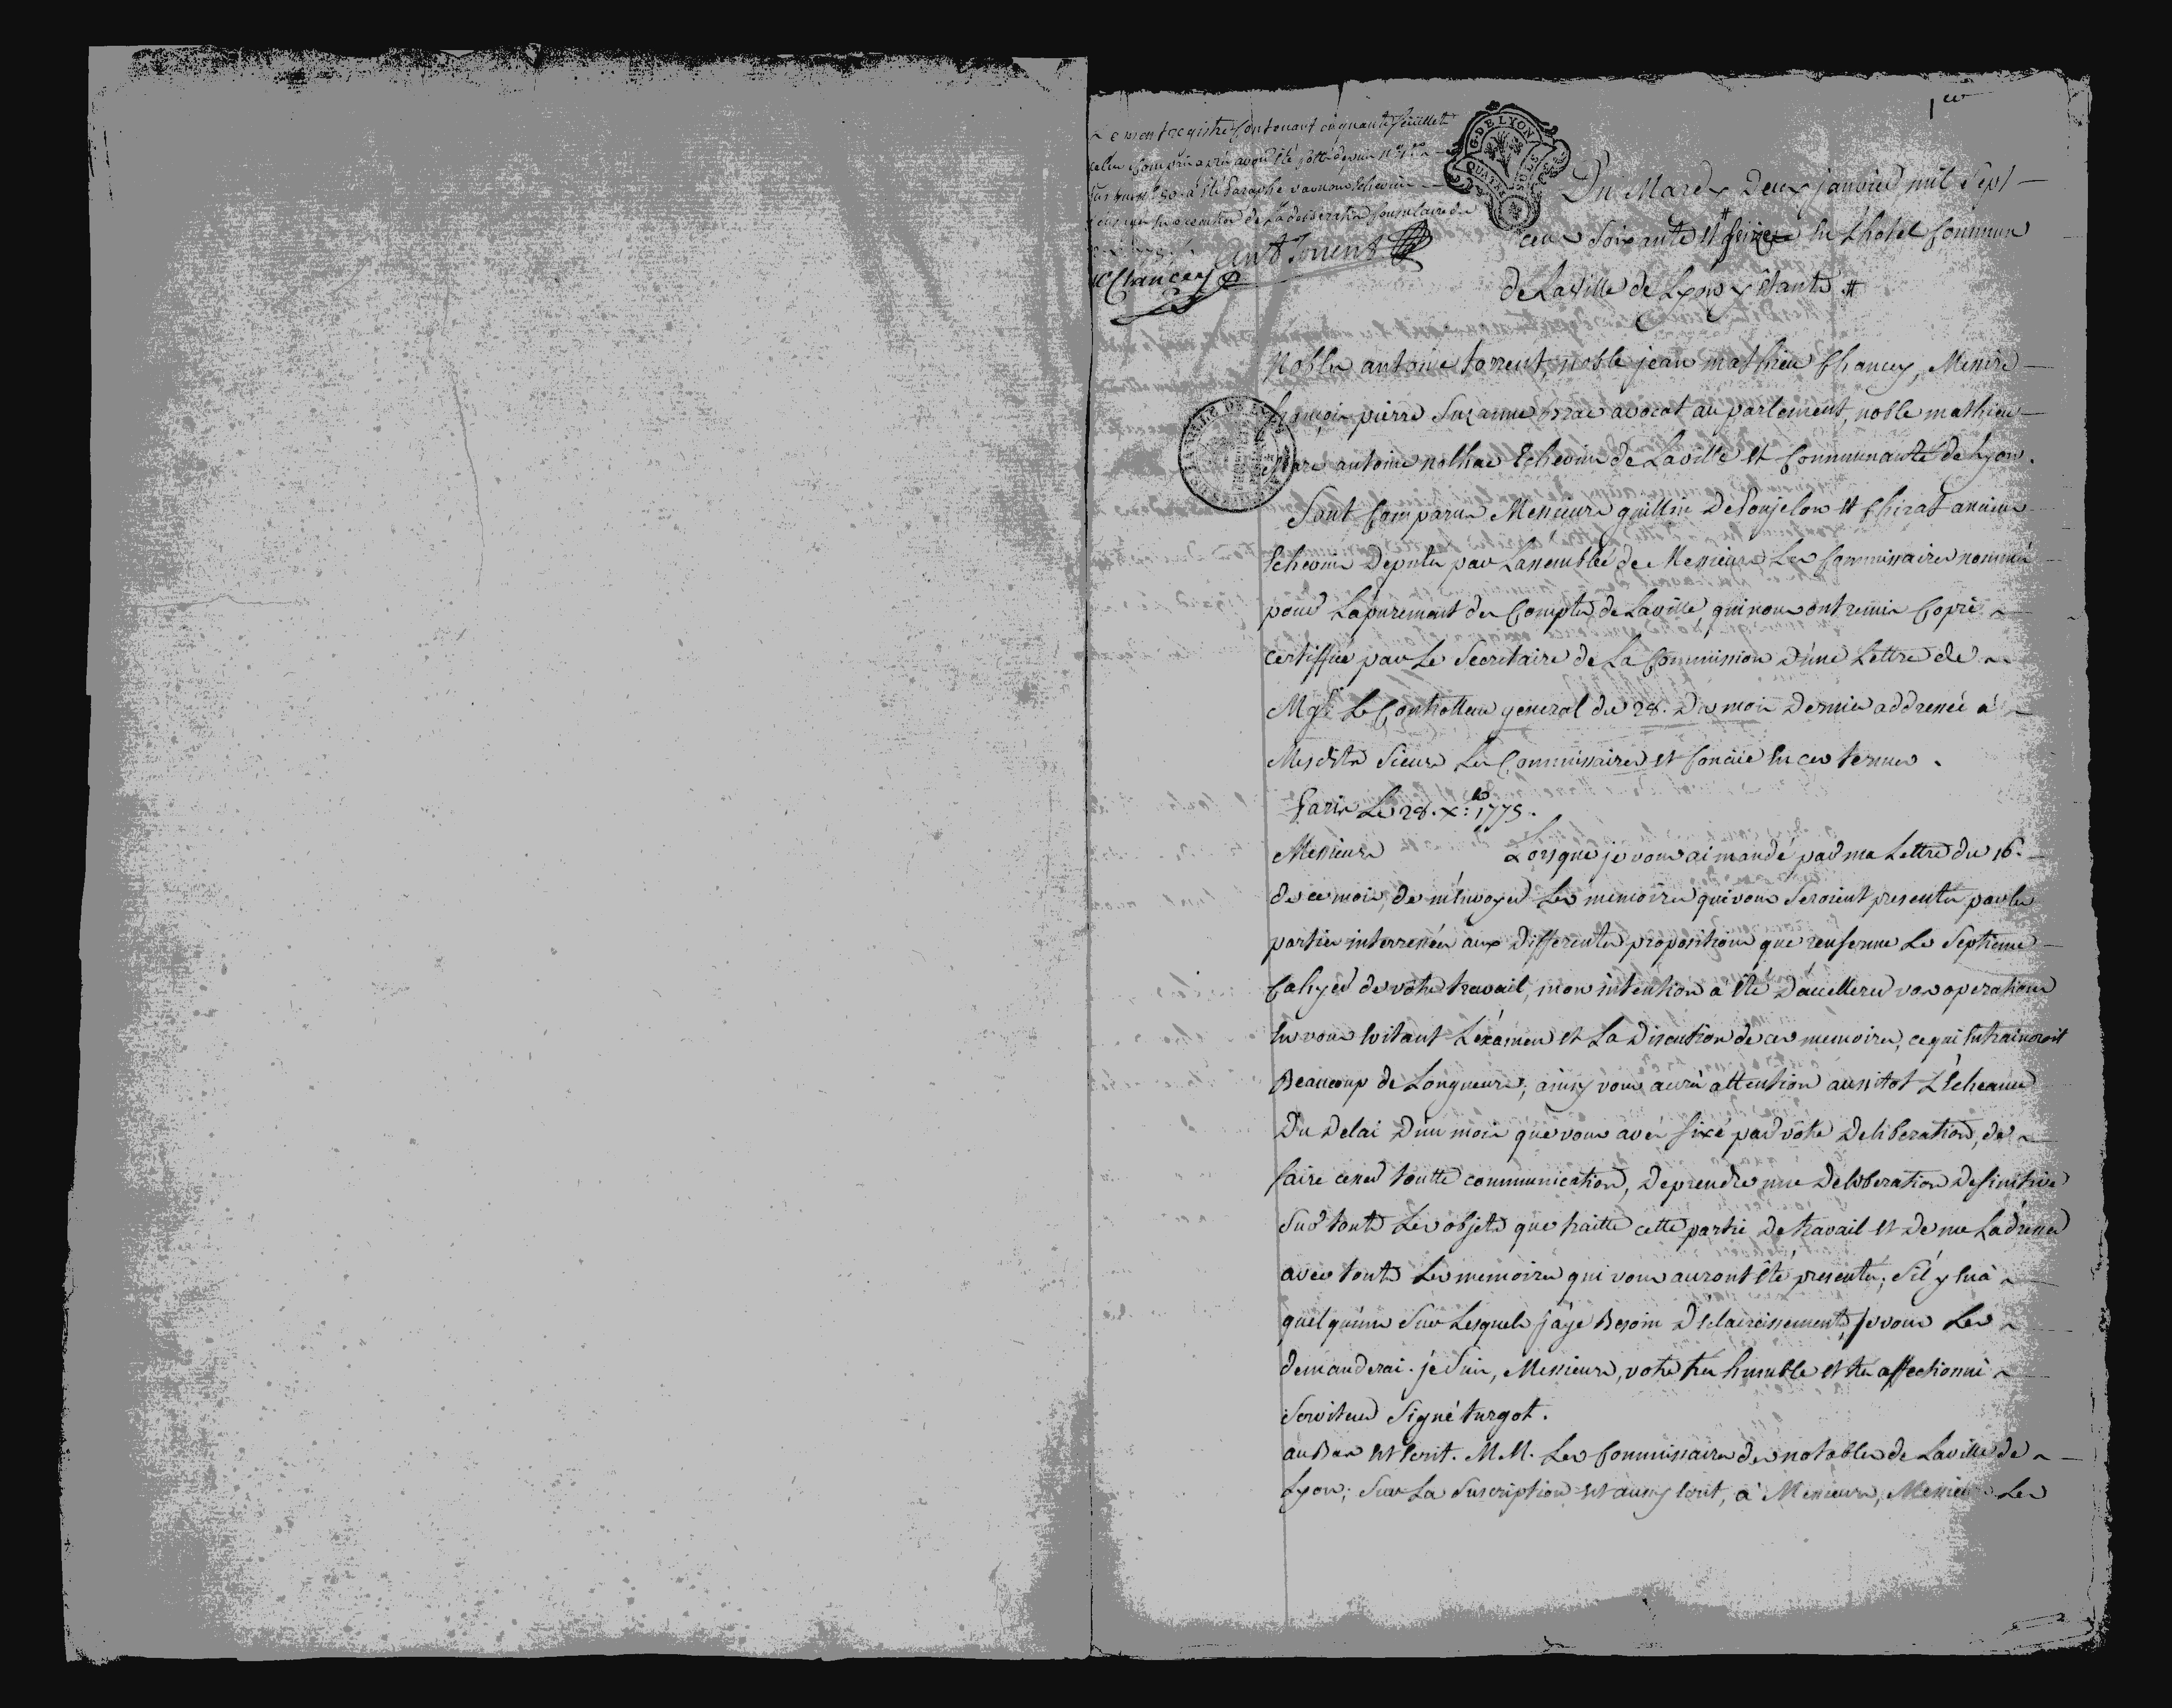 1er
ment registre contenant cinquante feuillets
celui compris après avoir été cotté depuis n° 1er
jusques n° 50 a été paraphé par nous Echevin
en execution de La deliberation Consulaire du
ant Torrent
Chancey
G. DE LYON
QUATRE SOLS
Du Mardy Deux janvier mil Sept
cent Soixante et seize en L'hotel Commun
de La ville de Lyon y étants
Nobles antoine torrent, noble jean mathieu Chancey, Messire
françois pierre Suzanne brac avocat au parlement, noble mathieu
Marc antoine nolhac Echevins de La ville et Communauté de Lyon.
Sont Comparus Messieurs guillin De Pougelon et Chirat anciens
Echevins Deputés par L'assemblée de Messieurs Les Commissaires nommés
pour L'apurement des Comptes de La ville, qui nous ont remis Copie
certiffiée par Le Secretaire de La Commission D'une Lettre de
Mgr. Le Controlleur general du 28. Du mois Dernier addressée à
Mesdits Sieurs Les Commissaires et Concüe en ces termes.
Paris Le 28. Xbre 1775.
Messieurs Lorsque je vous ai mandé par ma Lettre du 16.
de ce mois, de m'envoyer Les memoires qui vous Seroient presentés par les
parties interressées aux Differentes propositions que renferme Le Septieme
Cahyer de votre travail, mon intention a été D'accellerer vos operations
en vous evitant L'éxamen et La Discution de ces memoires, ce qui entraineroit
Beaucoup de Longueurs; ainsy vous aurés attention aussitot L'Echeance
Du Delai D'un mois que vous avés fixé par vôtre Deliberation, de
faire cesser toutte communication, De prendre une Deliberation Definitive
Sur touts Les objets que traitte cette partie De travail et De me L'adresser
avec touts Les memoires qui vous auront été presentés; S'il y en a
quelqu'uns Sur Lesquels j'aye Besoin D'Eclaircissements, je vous Les
demanderai. je Suis, Messieurs, votre tres humble et tres affectionné
Serviteur Signé turgot.
au Bas est écrit. M.M. Les Commissaires des notables de La ville de
Lyon; Sur La Suscription est aussy écrit, à Messieurs, Messieurs Les